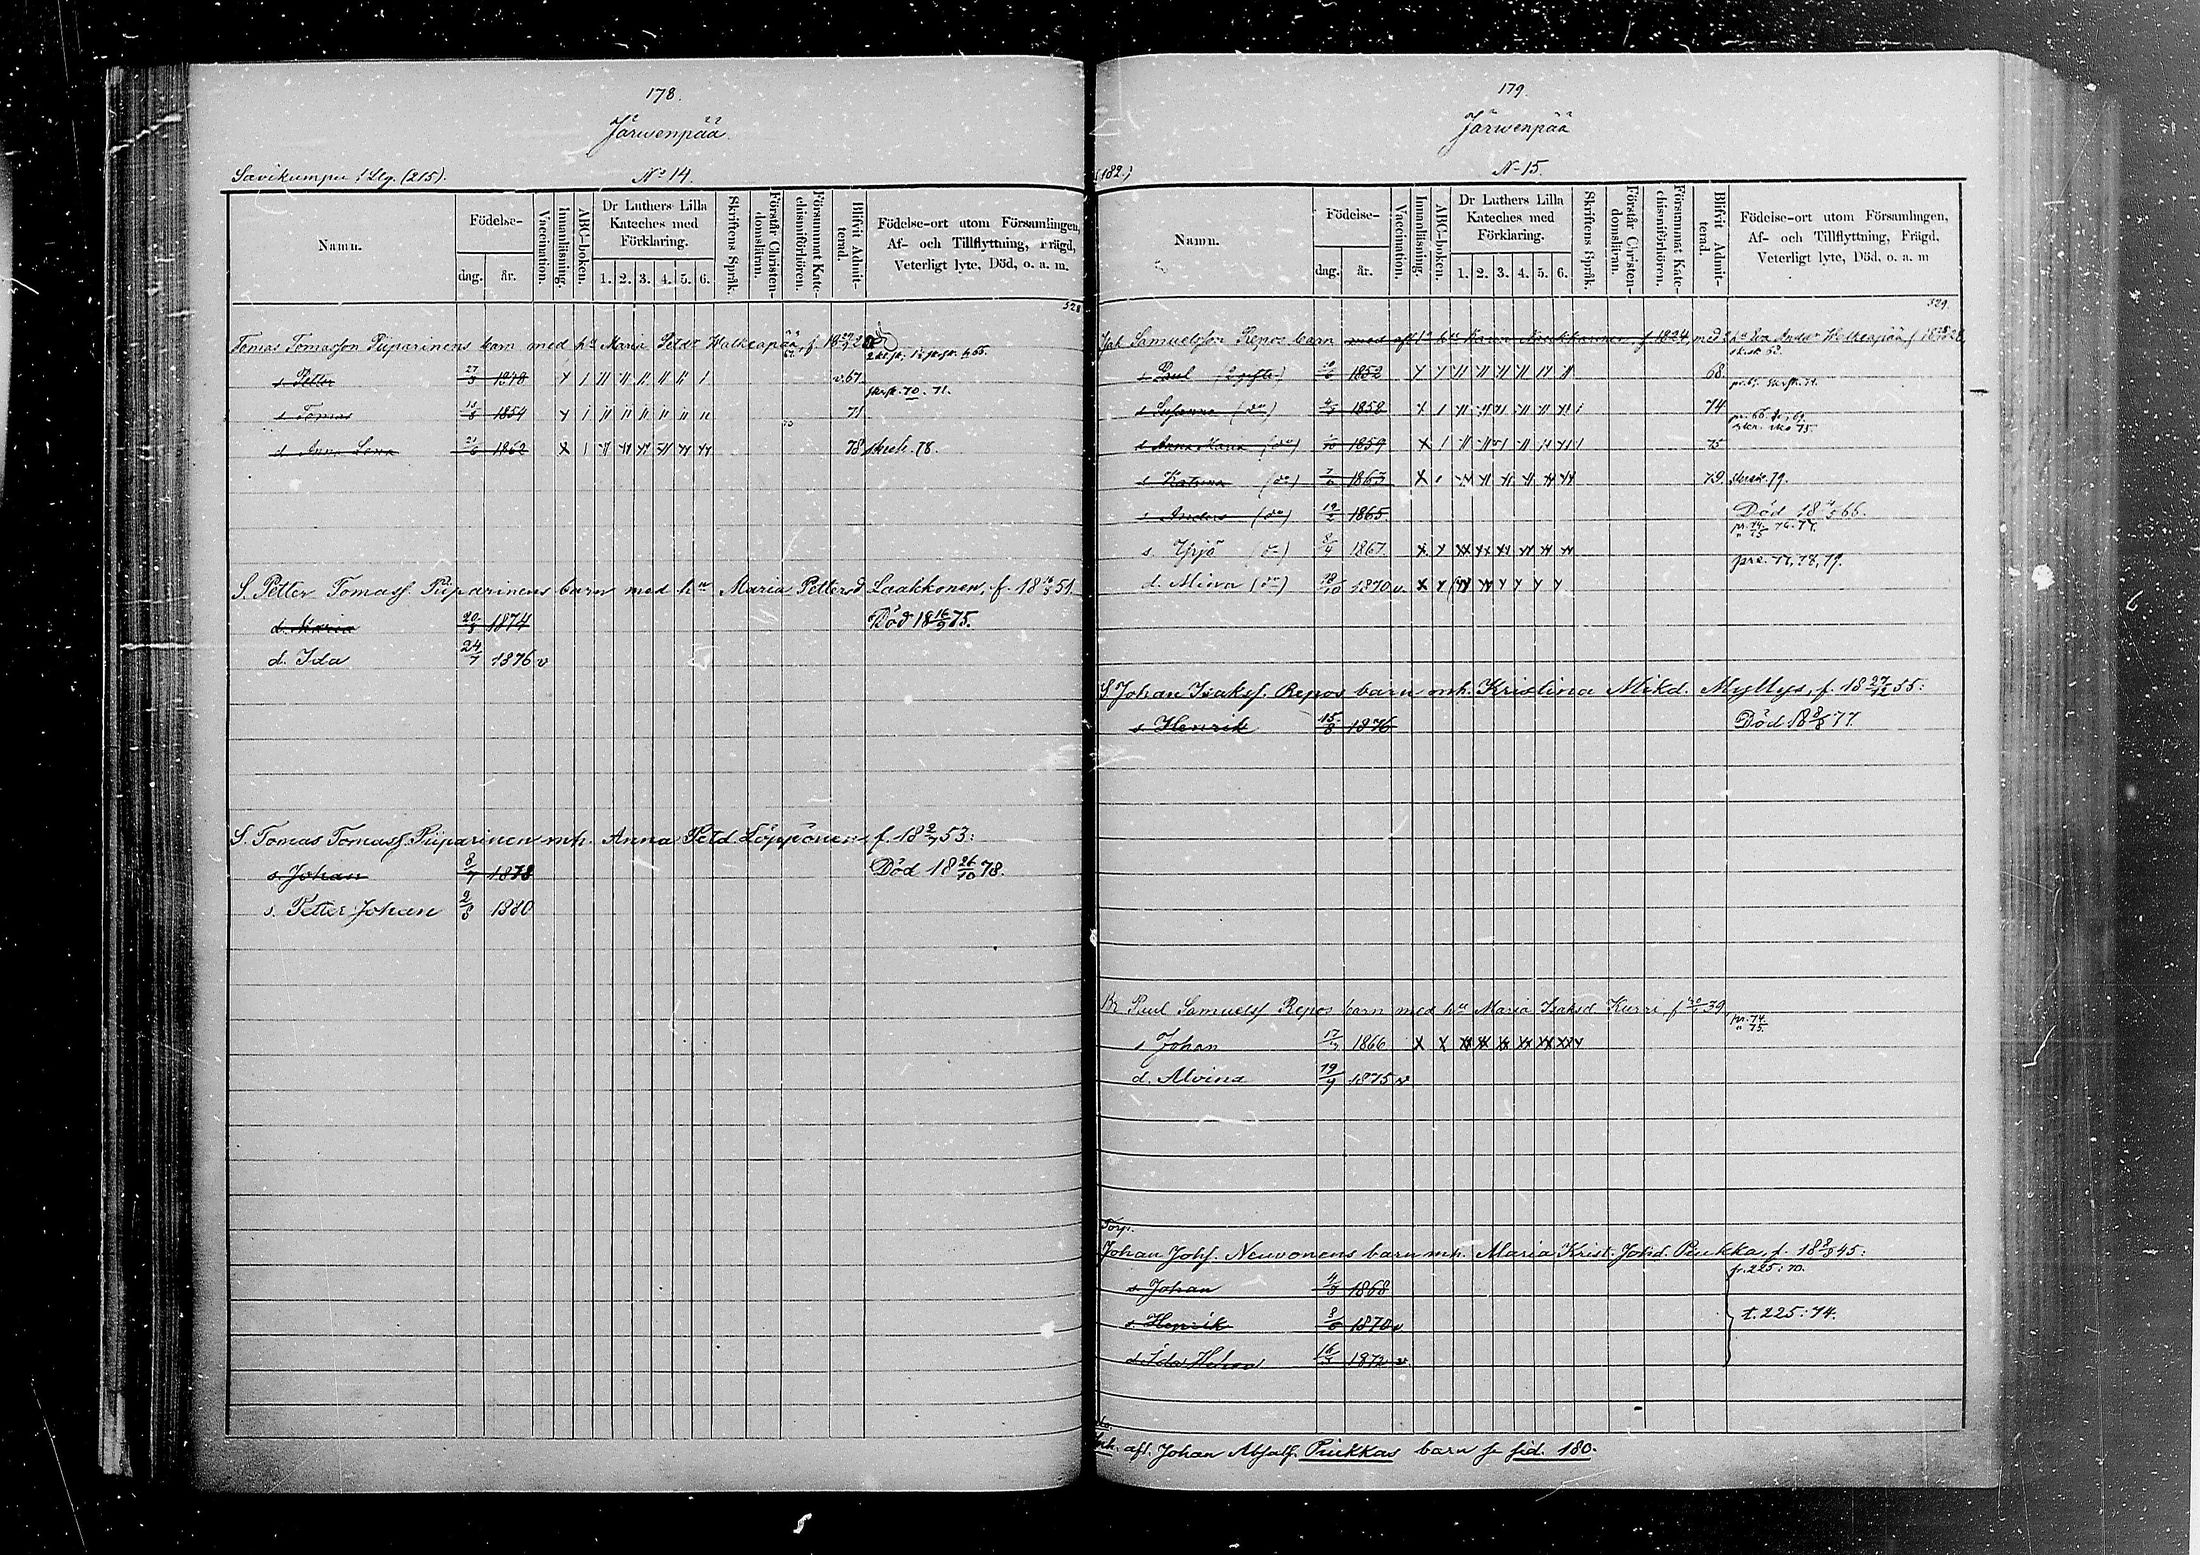 178.
Järwenpää
Savikumpu (Llg. (215).
No 14.
Namn.
Födelse-
dag.
år.
Vaccination.
Innanläsning.
ABC-boken.
Dr Luthers Lilla Kateches med Förklaring.
1. 2. 3. 4. 5. 6.
Skriftens Språk.
Förstår Christendomsläran.
Försummat Katechismiförhören.
Blifvit Admitterad.
Födelse-ort utom Församlingen, Af- och Tillflyttning, Frägd, Veterligt lyte, Död, o. a. m.
528
Tomas Tomasson Piiparinens barn med hu Maria Petdr Walkeapää, f. 18
s. Petter 27/5 1848 v.67
skrsk. 70. 71.
s. Tomas 13/8 1854 71
d. Anna Lena 21/6 1862 78 skrsk. 78.
S. Petter Tomass. Piiparinens barn med hu Maria Pettersd Laakkonen, f. 18 51
d. Maria 20/8 1874 Död 18 16/9 75.
d. Ida 24/7 1876 v
S. Tomas Tomass. Piiparinen mh. Anna Petd Löppönen f. 18 2/7 53:
s. Johan 8/7 1878 Död 18 26/10 78.
s. Petter Johan 2/8 1880
179.
Järwenpää
(182.)
No 15.
Namn.
Födelse-
dag.
år.
Vaccination.
Innanläsning.
ABC-boken.
Dr Luthers Lilla Kateches med Förklaring.
1. 2. 3. 4. 5. 6.
Skriftens Språk.
Förstår Christendomsläran.
Försummat Katechismiförhören.
Blifvit Admitterad.
Födelse-ort utom Församlingen, Af- och Tillflyttning, Frägd, Veterligt lyte, Död, o. a. m
529.
Samuelsson Repos barn med f. 1824 med
s. Paul (2 gifte) 1852 68
s. Susanna (do) 1858 74
d. Anna Maria (do) 1859 75
d. Katrina (do) 1863 79 skrsk. 79.
s. Anders (do) 19/2 1865. Död 18 66.
s. Yrjö (do) 8/4 1867
pre. 77, 78, 79.
d. Miina (do) 1870 v.
S. Johan Isakss. Repos barn mh. Kristina Mikd. Myllys, f. 18 27/12 55:
s. Henrik 15/8 1876 Död 18 8/8 77.
Br Paul Samuelss Repos barn med hu Maria Isaksd Kurri f 39.
pr. 74. " 75.
s Johan 17/7 1866
d. Alvina 19/9 1875 v
Torp.
Johan Johs. Neuvonens barn mh. Maria Krist. Johd. Pukka, f. 18 45:
fr. 225: 70.
s. Johan 1868
s. Henrik 1870 v
t. 225: 74.
d. Ida Helena 1872 v.
Inh. afl. Johan Absalf. Piukkas barn se sid. 180.